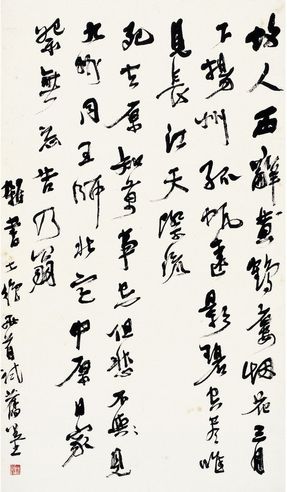 故人西辭黃鶴樓烟花三月
下揚州孤帆遠影碧空盡唯
見長江天際流
死去原知萬事空但悲不見
九州同王師北定中原日家
祭無忘告乃翁
書七絕兩首試舊墨